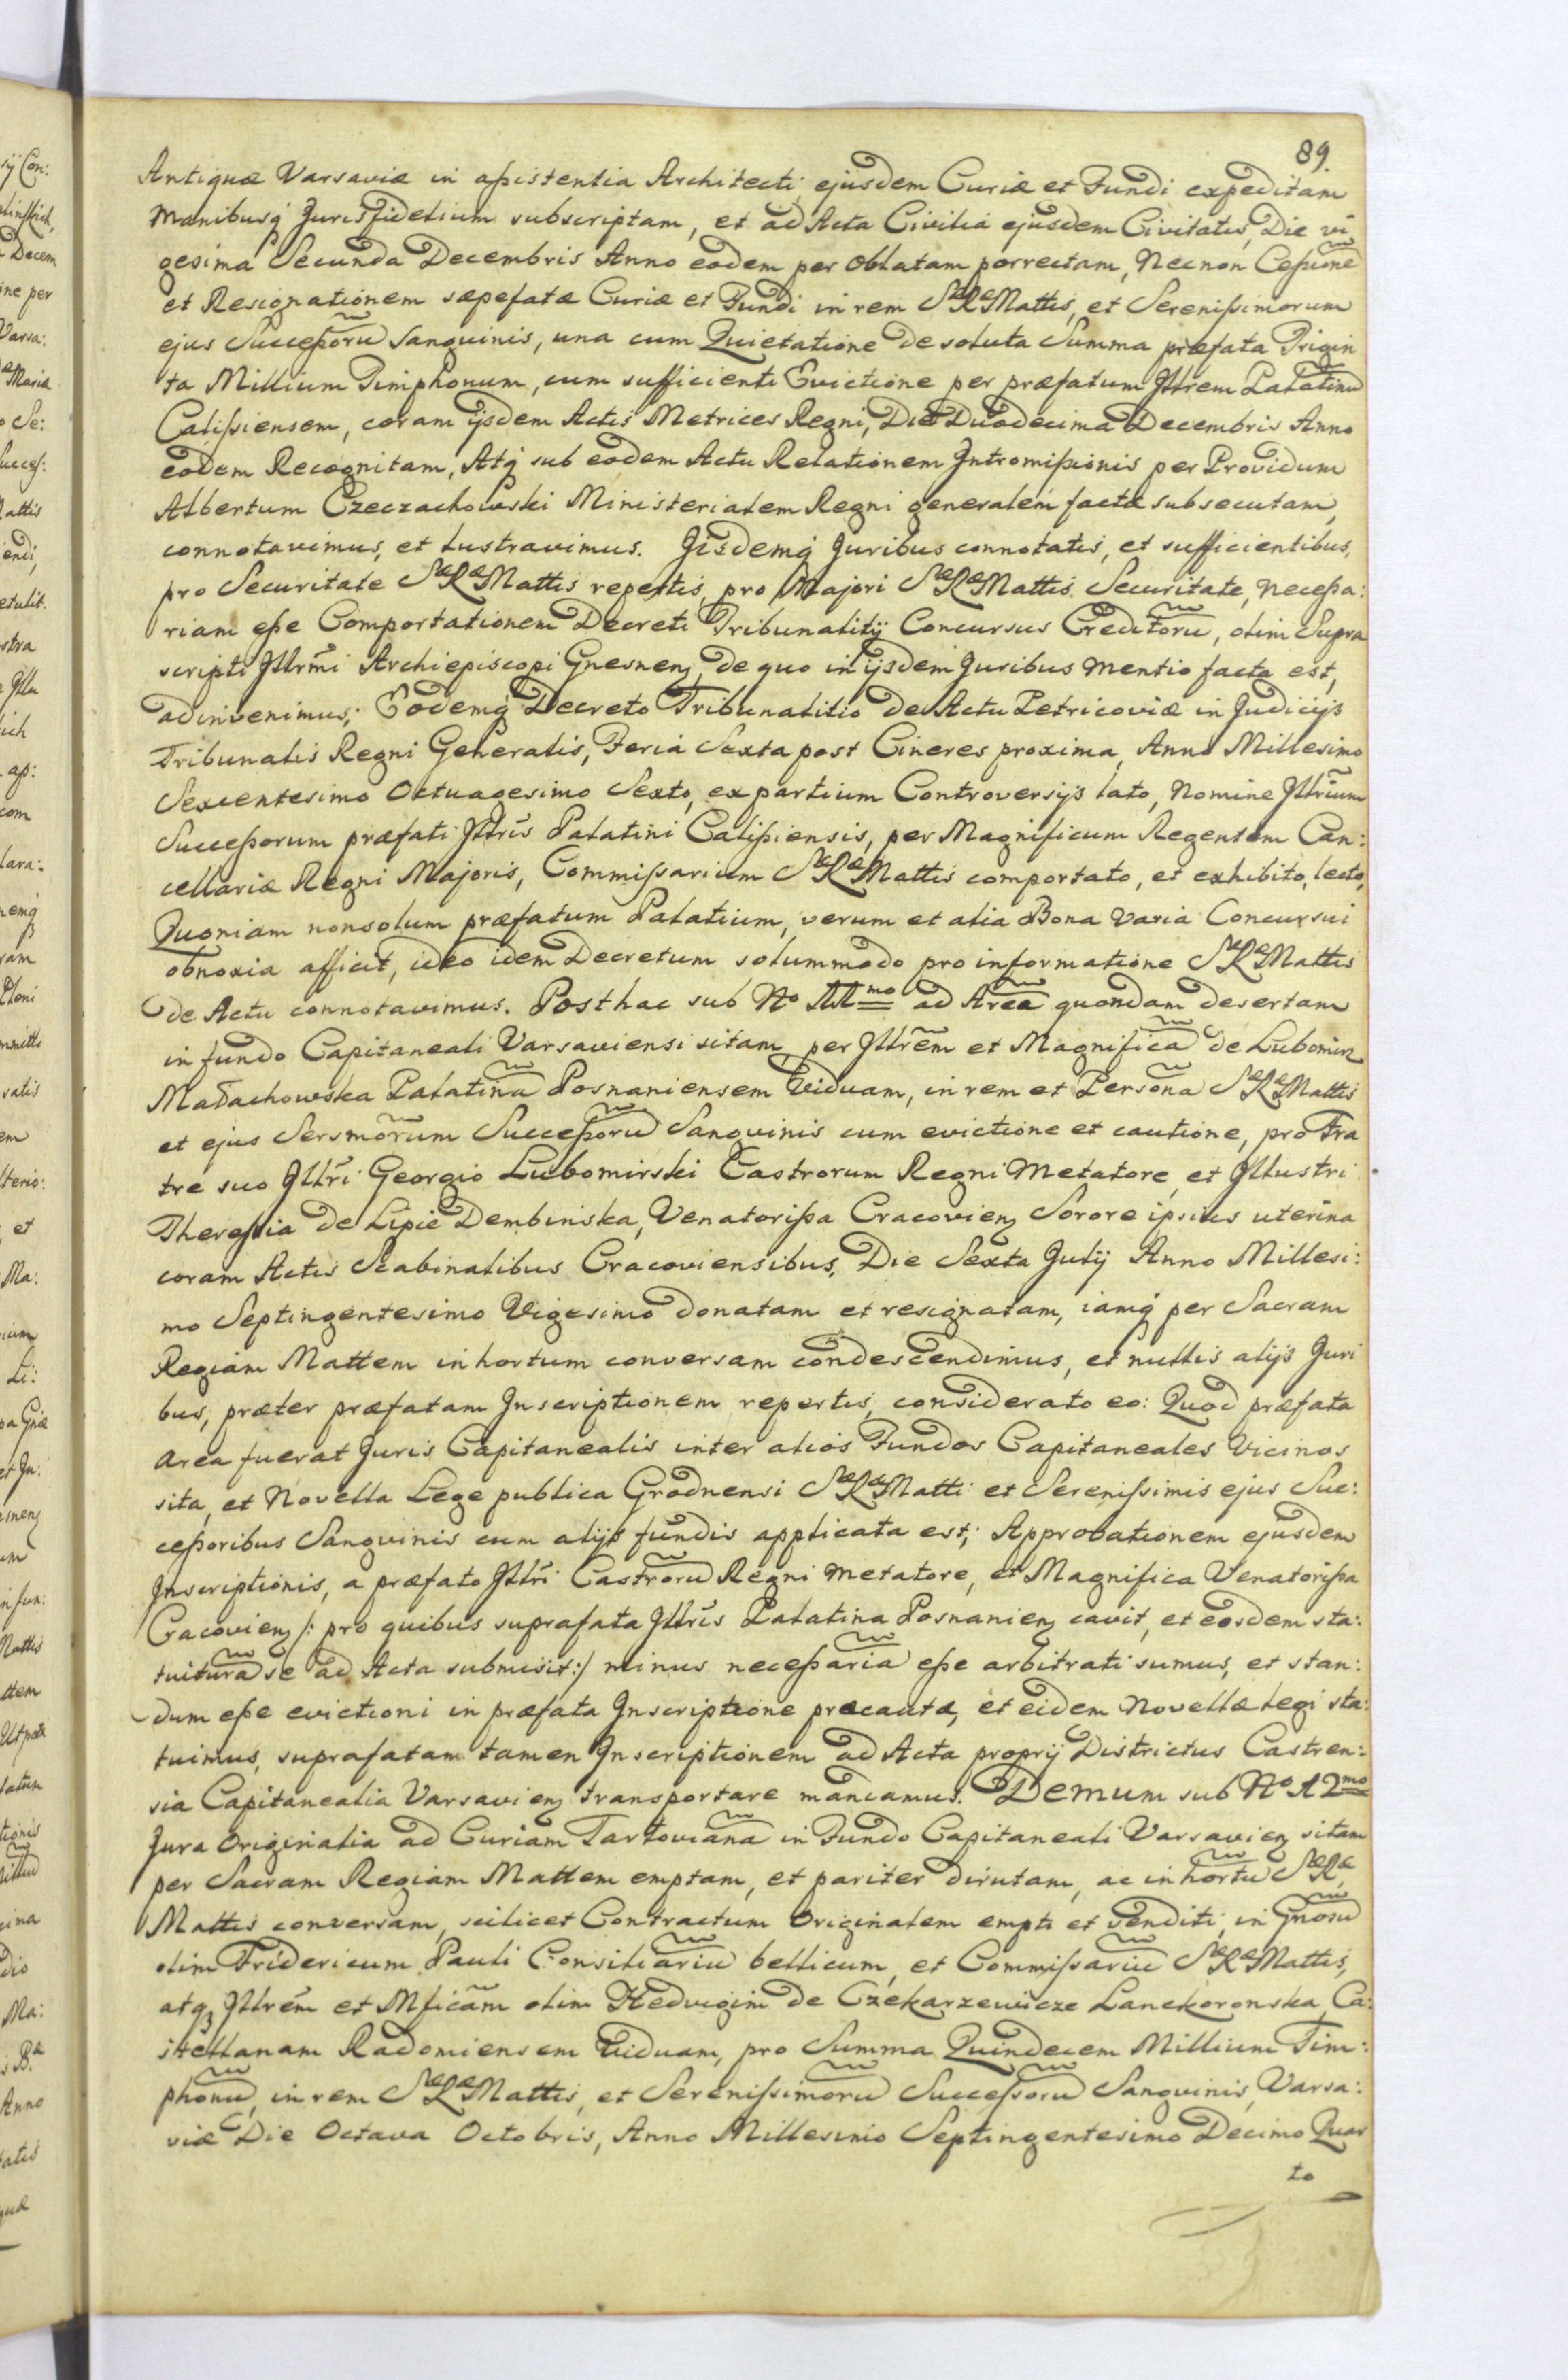 89.
Antiquæ Varsaviæ in aßistentia Architecti ejusdem Curiæ et Fundi expeditam
Manibusq́ Jurisfidelium subscriptam, et ad Acta Civilia ejusdem Civitatis, Die vi
gesima Secunda Decembris Anno eodem per Oblatam porrectam, Necnon Ceßione͂
et Resignationem sæpefatæ Curiæ et Fundi in rem SæRæMattis, et Serenißimorum
ejus Succeßoru͂ Sanguinis, una cum Quietatione de soluta Summa præfata Trigin
ta Millium Timphonum, cum sufficienti Evictione per præfatum Jllrem Palatinu͂
Calißiensem, coram ijsdem Actis Metrices Regni, Die Duodecima Decembris Anno
eodem Recognitam, Atq́ sub eodem Actu Relationem Jntromißionis per Providum
Albertum Czeczachowski Ministerialem Regni generalem factæ subsecutam,
connotavimus, et lustravimus. Jisdemq́ Juribus connotatis, et sufficientibus,
pro Securitate SæRæMattis repertis, pro Majori SæRæMattis Securitate, neceßa:
riam eße Comportationem Decreti Tribunalitij Concursus Creditoru͂, olim Supra
scripti Jllrm̃i Archiepiscopi Gnesnenȝ, de quo in ijsdem Juribus mentio facta est,
adinvenimus; Eodemq́ Decreto Tribunalitio de Actu Petricoviæ in Judicijs
Tribunalis Regni Generalis, Feria Sexta post Cineres proxima, Anno Millesimo
Sexcentesimo Octuagesimo Sexto, ex partium Controversijs lato, Nomine Jllriũm
Succeßorum præfati Jllris̃ Palatini Calißiensis, per Magnificum Regentem Can:
cellariæ Regni Majoris, Commißarium SæRæMattis comportato, et exhibito, lecto,
Quoniam nonsolum præfatum Palatium, verum et alia Bona varia Concursui
obnoxia afficit, ideo idem Decretum solummodo pro informatione SæRæMattis
de Actu connotavimus. Posthac sub No 11mo ad Area͂ quondam desertam
in fundo Capitaneali Varsaviensi sitam, per Jllrẽm et Magnifica͂ de Lubomirz
Małachowska Palatina͂ Posnaniensem Viduam, in rem et Persona͂ SæRæMattis
et ejus Sersmõrum Succeßoru͂ Sanguinis cum evictione et cautione, pro Fra
tre suo Jllrĩ Georgio Lubomirski Castrorum Regni Metatore, et Jllustri
Theressia de Lipie Dembinska, Venatorißa Cracovienȝ Sorore ipsius uterina
coram Actis Scabinalibus Cracoviensibus, Die Sexta Julij Anno Millesi:
mo Septingentesimo Vigesimo donatam et resignatam, iamq́ per Sacram
Regiam Mattem in hortum conversam condescendimus, et nullis alijs Juri
bus, præter præfatam Jnscriptionem repertis, considerato eo: Quod præfata
area fuerat Juris Capitanealis inter alios Fundos Capitaneales Vicinos
sita, et Novella Lege publica Grodnensi SæRæMatti et Serenißimis ejus Suc:
ceßoribus Sanguinis cum alijs fundis applicata est; Approbationem ejusdem
Jnscriptionis, a præfato Jllrĩ Castroru͂ Regni metatore, et Magnifica Venatorißa
Cracovienȝ /: pro quibus suprafata Jllris̃ Palatina Posnanienȝ cavit, et eosdem sta:
tuitura͂ se ad Acta submisit:/ minus neceßaria͂ eße arbitrati sumus, et stan:
dum eße evictioni in præfata Jnscriptione præcautæ, et eidem Novellæ legi sta:
tuimus, suprafatam tamen Jnscriptionem ad Acta proprij Districtus Castren:
sia Capitanealia Varsavienȝ transportare mandamus. Demum sub No 12mo
Jura Originalia ad Curiam Tarłoviana͂ in Fundo Capitaneali Varsavienȝ sitam
per Sacram Regiam Mattem emptam, et pariter dirutam, ac in hortu͂ SæRæ
Mattis conversam, scilicet Contractum Originalem empti et venditi, in Gñosu͂
olim Fridericum Pauli Consiliariu͂ bellicum, et Commißariu͂ SæRæMattis,
atqȝ Jllrẽm et Mficãm olim Hedvigim de Czekarzewicze Lanckoronska Ca:
stellanam Radomiensem Viduam, pro Summa Quindecem Millium Tim:
phonu͂, in rem SæRæMattis, et Serenißimoru͂ Succeßoru͂ Sanguinis, Varsa:
viæ Die Octava Octobris, Anno Millesimo Septingentesimo Decimo Quar
to